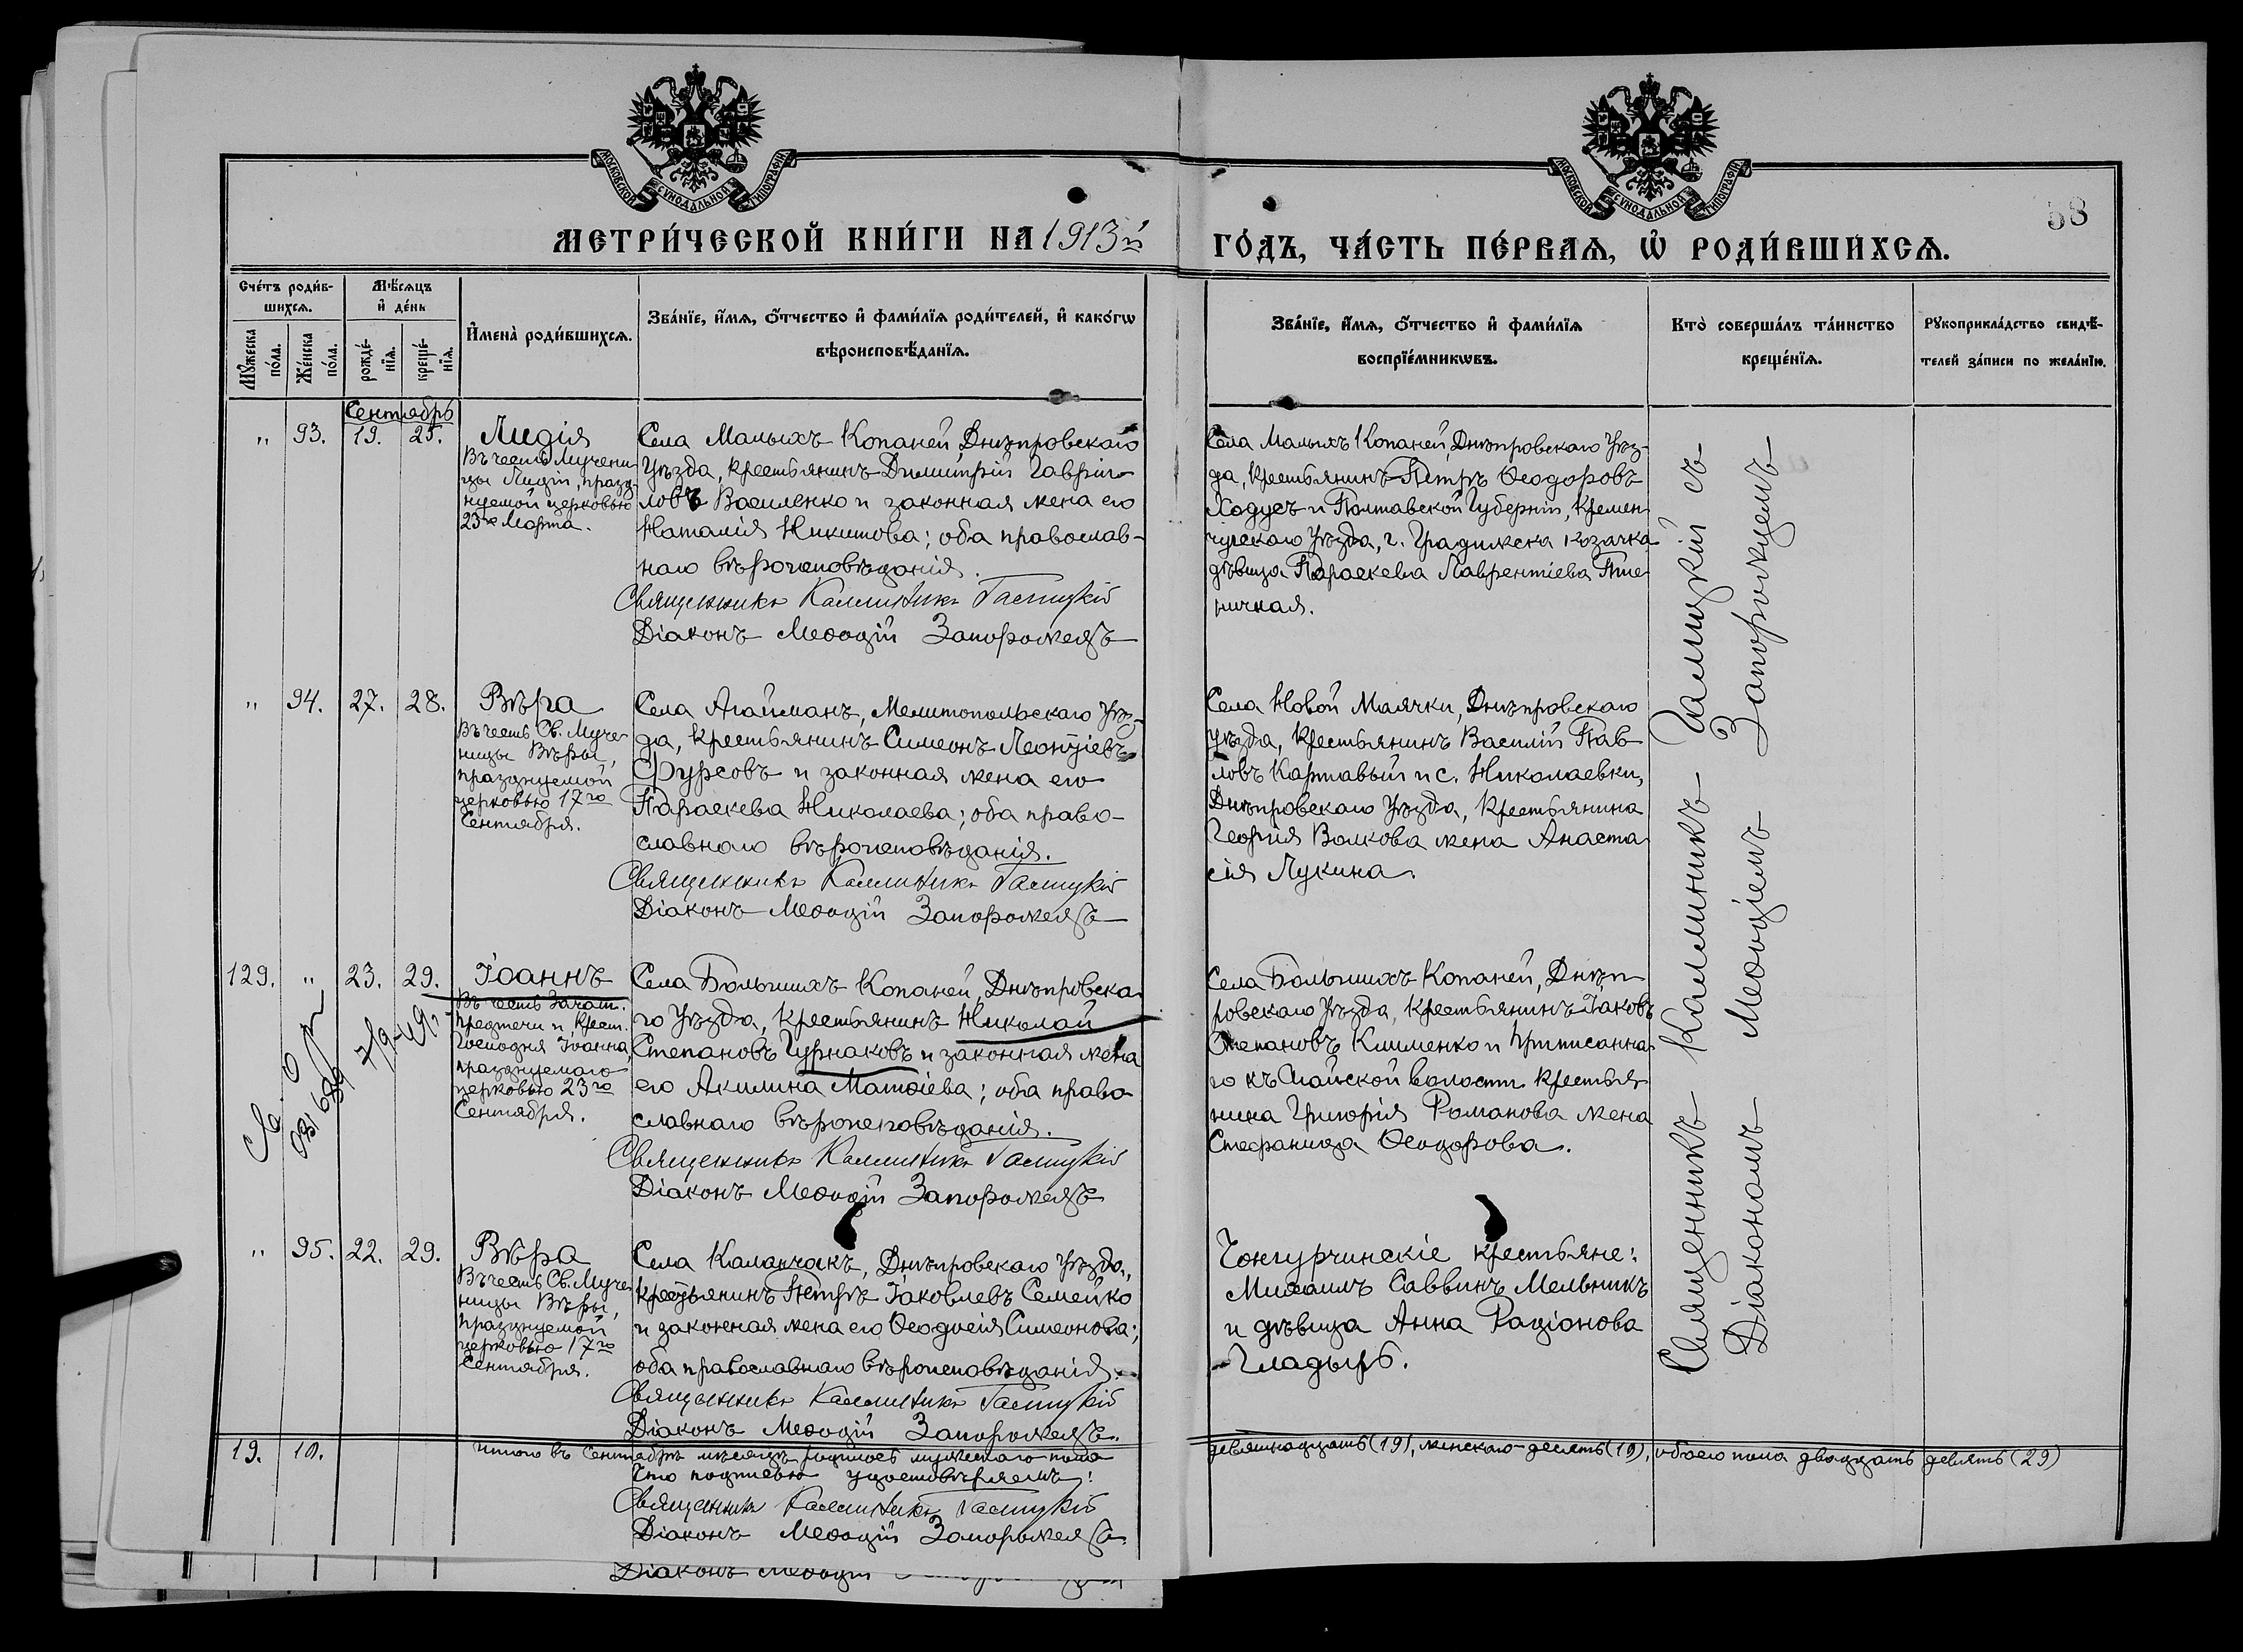 МОСКОВСКОЙ СѴНОДАЛЬНОЙ ТИПОГРАФІИ
МОСКОВСКОЙ СѴНОДАЛЬНОЙ ТИПОГРАФІИ
58
МЕТРИ́ЧЕСКОЙ КНИ́ГИ НА 1913й
ГО́ДЪ, ЧА́СТЬ ПЕ́РВАѦ, Ѡ РОДИ́ВШИХСѦ.
Сче́тъ роди́в-
шихсѧ.
Мꙋ́жеска по́ла.
Же́нска по́ла.
Мѣ́сѧцъ
и де́нь
рожде́-
нїѧ.
креще́-
нїѧ.
Имена̀ роди́вшихсѧ.
Зва́нїе, и́мѧ, о́тчество и фами́лїѧ роди́телей, и како́гѡ
вѣроисповѣ́данїѧ.
Зва́нїе, и́мѧ, о́тчество и фами́лїѧ
воспрїе́мникѡвъ.
Кто̀ соверша́лъ та́инство
креще́нїѧ.
Рꙋкоприкла́дство свидѣ́-
телей за́писи по жела́нїю.
Сентябрь
" 93. 19. 25.
Лидія
Въ честь Мучени-
цы Лидіи, празд-
нуемой церковью
23го Марта.
Села Малыхъ Копаней Днѣпровскаго
Уѣзда, крестьянинъ Димитрій Гаврі-
ловъ Василенко и законная жена его
Наталія Никитова; оба православ-
наго вѣроисповѣданія.
Священникъ Каллиникъ Галицкій
Діаконъ Меѳодій Запорожецъ
Села Малыхъ Копаней, Днѣпровскаго Уѣз-
да, крестьянинъ Петръ Ѳеодоровъ
Ходусъ и Полтавской Губерніи, Кремен-
чугскаго Уѣзда, г. Градижска козачка
дѣвица Параскева Лаврентіева Пше-
ничная.
" 94. 27. 28.
Вѣра
Въ честь Св. Муче-
ницы Вѣры,
празднуемой
церковью 17го
Сентября.
Села Агайманъ, Мелитопольскаго Уѣз-
да, крестьянинъ Симеонъ Леонтіевъ
Фурсовъ и законная жена его
Параскева Николаева; оба право-
славнаго вѣроисповѣданія.
Священникъ Каллиникъ Галицкій
Діаконъ Меѳодій Запорожецъ
Села Новой Маячки, Днѣпровскаго
уѣзда, крестьянинъ Василій Пав-
ловъ Картавый и с. Николаевки,
Днѣпровскаго Уѣзда, крестьянина
Георгія Волкова жена Анаста-
сія Лукина.
129. " 23. 29.
Іоаннъ
Въ честь Зачат.
Предтечи и Крест.
Господня Іоанна,
празднуемаго
церковью 23го
Сентября.
Села Большихъ Копаней, Днѣпровска-
го Уѣзда, крестьянинъ Николай
Степановъ Гурнаковъ и законная жена
его Акилина Матѳіева; оба право-
славнаго вѣроисповѣданія.
Священникъ Каллиникъ Галицкій
Діаконъ Меѳодій Запорожецъ
Села Большихъ Копаней, Днѣп-
ровскаго Уѣзда, крестьянинъ Іаковъ
Степановъ Клименко и приписанна-
го къ волости крестья-
нина Григорія Романова жена
Стефанида Ѳеодорова.
" 95. 22. 29.
Вѣра
Въ честь Св. Муче-
ницы Вѣры,
празднуемой
церковью 17го
Сентября.
Села Каланчакъ, Днѣпровскаго Уѣзда,
крестьянинъ Петръ Іаковлевъ Семейко
и законная жена его Ѳеодосія Симеонова;
оба православнаго вѣроисповѣданія.
Священникъ Каллиникъ Галицкій
Діаконъ Меѳодій Запорожецъ.
Чонгурчинскіе крестьяне:
Михаилъ Саввинъ Мельникъ
и дѣвица Анна Радіонова
Гладырь.
Священникъ Каллиникъ Галицкій съ
Діакономъ Меѳодіемъ Запорожцемъ
19. 10. Итого въ Сентябрѣ мѣсяцѣ родилось мужескаго пола девятнадцать (19), женскаго-десять (10), обоего пола двадцать девять (29)
Что подписью удостовѣряемъ:
Священникъ Каллиникъ Галицкій
Діаконъ Меѳодій Запорожецъ.
Діаконъ Меѳодій